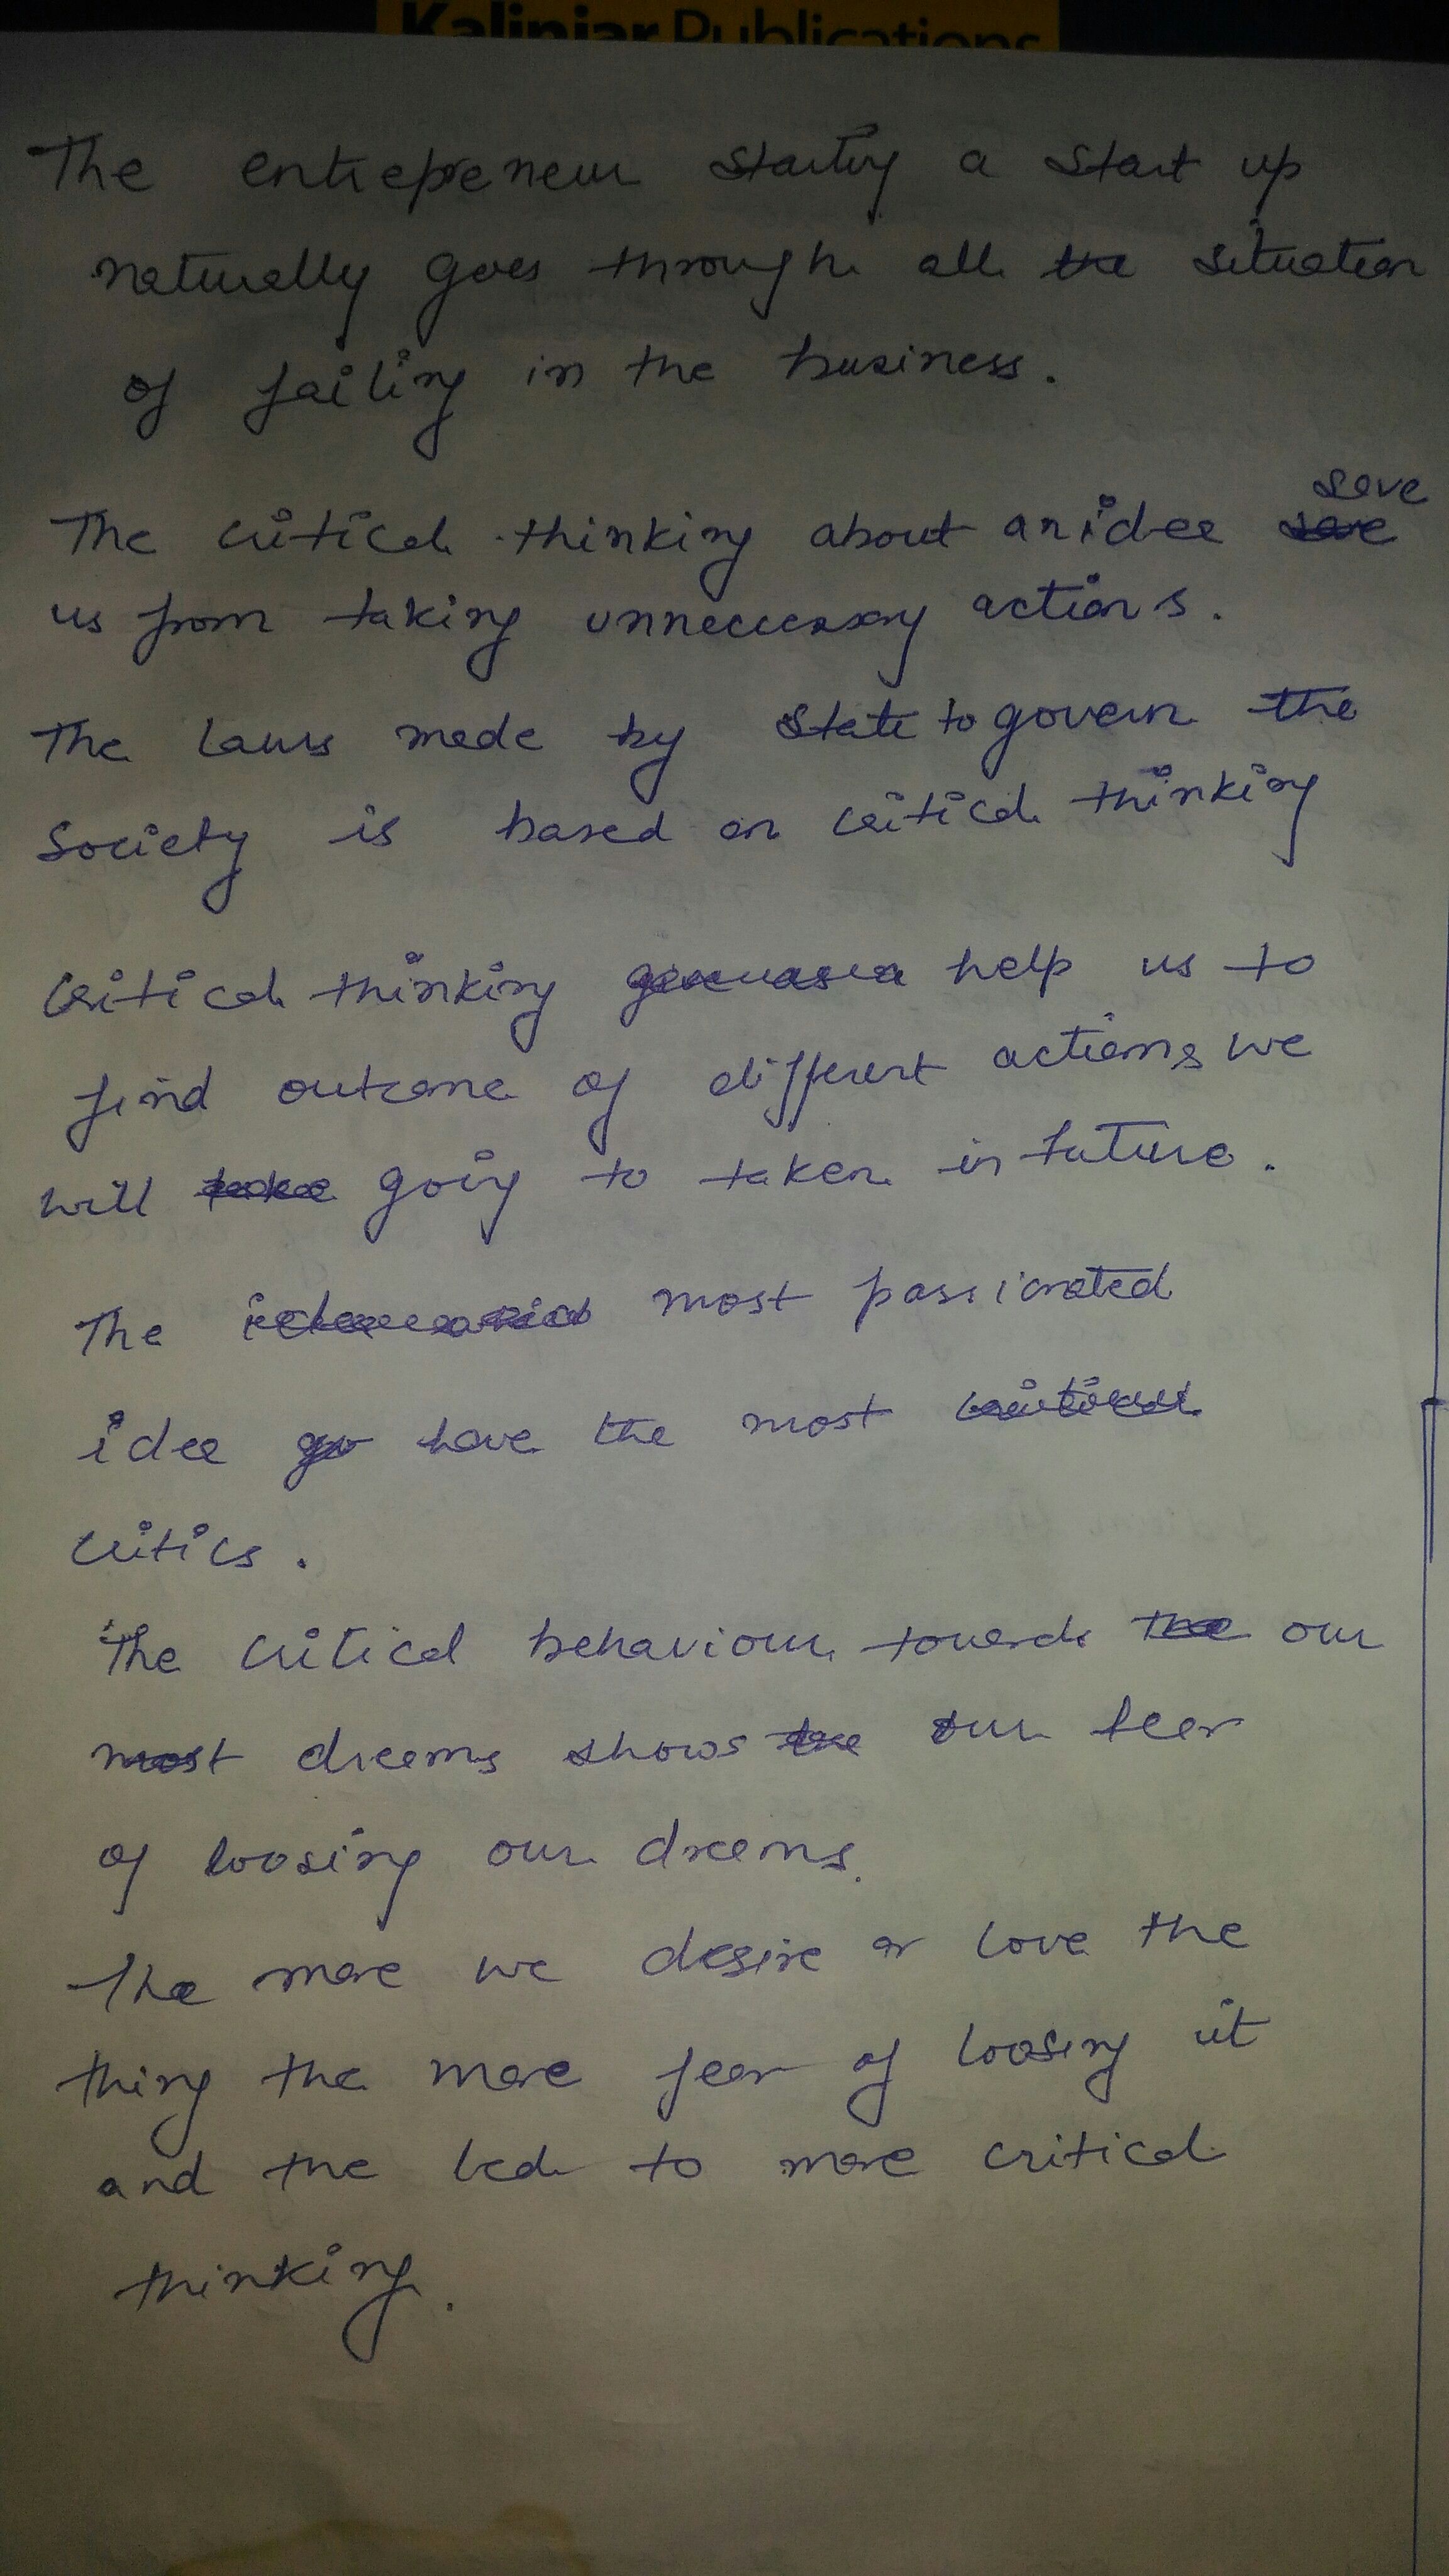 Kalinjar Publications
The entrepreneur starting a start up
naturally goes through all the situation
of failing in the business.
save
The critical thinking about an idea save
us from taking unneccessary actions.
The laws made by state to govern the
society is based on critical thinking
Critical thinking help us to
find outcome of different actions we
will take going to taken in future.
The most passionated
idea go have the most critical
critics.
The critical behaviour towards the our
most dreams shows the our fear
of loosing our dreams.
The more we desire or love the
thing the more fear of loosing it
and the lead to more critical
thinking.